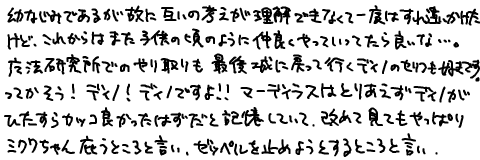 幼なじみであるが故に互いの考えが理解できなくて一度はすれ違いかけた
けど、これからはまた子供の頃のように仲良くやっていってたら良いな…。
魔法研究所でのやり取りも最後城に戻って行くディノのせりつも好きです。
ってかそう!ディノ!ディノですよ!!マーディラスはとりあえずディノが
ひたすらカッコ良かったはずだと記憶していて、改めて見てもやっぱり
ミクウちゃん庇うところと言い、ゼッペルを止めようとするところと言い、